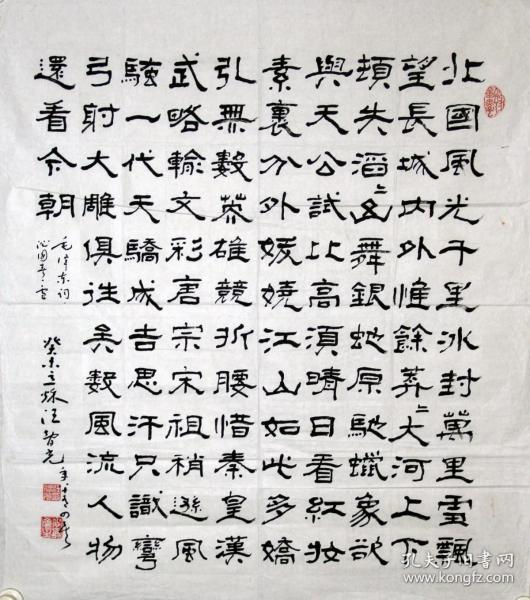 北國風光千里冰封萬里雪飄
望長城內外惟餘莽〻大河上下
頓失滔〻山舞銀蛇原馳蠟象欲
與天公試比高須晴日看紅妝
素裹分外妖嬈江山如此多嬌
引無數英雄競折腰惜秦皇漢
武略輸文彩唐宗宋祖稍遜風
騷一代天驕成吉思汗只識彎
弓射大雕俱往矣數風流人物
還看今朝
毛澤東詞
沁園春雪
癸未立秋汪
孔夫子旧书网
www.kongfz.com